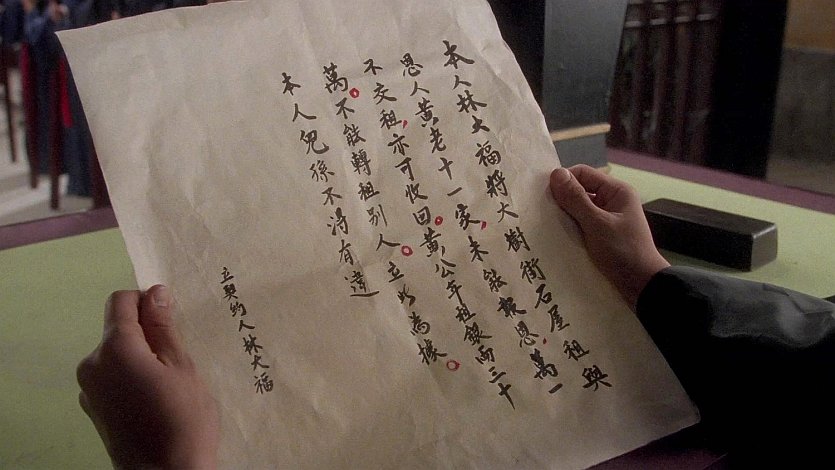 本人林大福將大樹街石屋租與
恩人黃老十一家,未能報恩,萬一
不交租,亦可收回。黃公年租銀兩三十
萬。不能轉租別人。立此為據。
本人兒孫不得有違
立契約人林大福